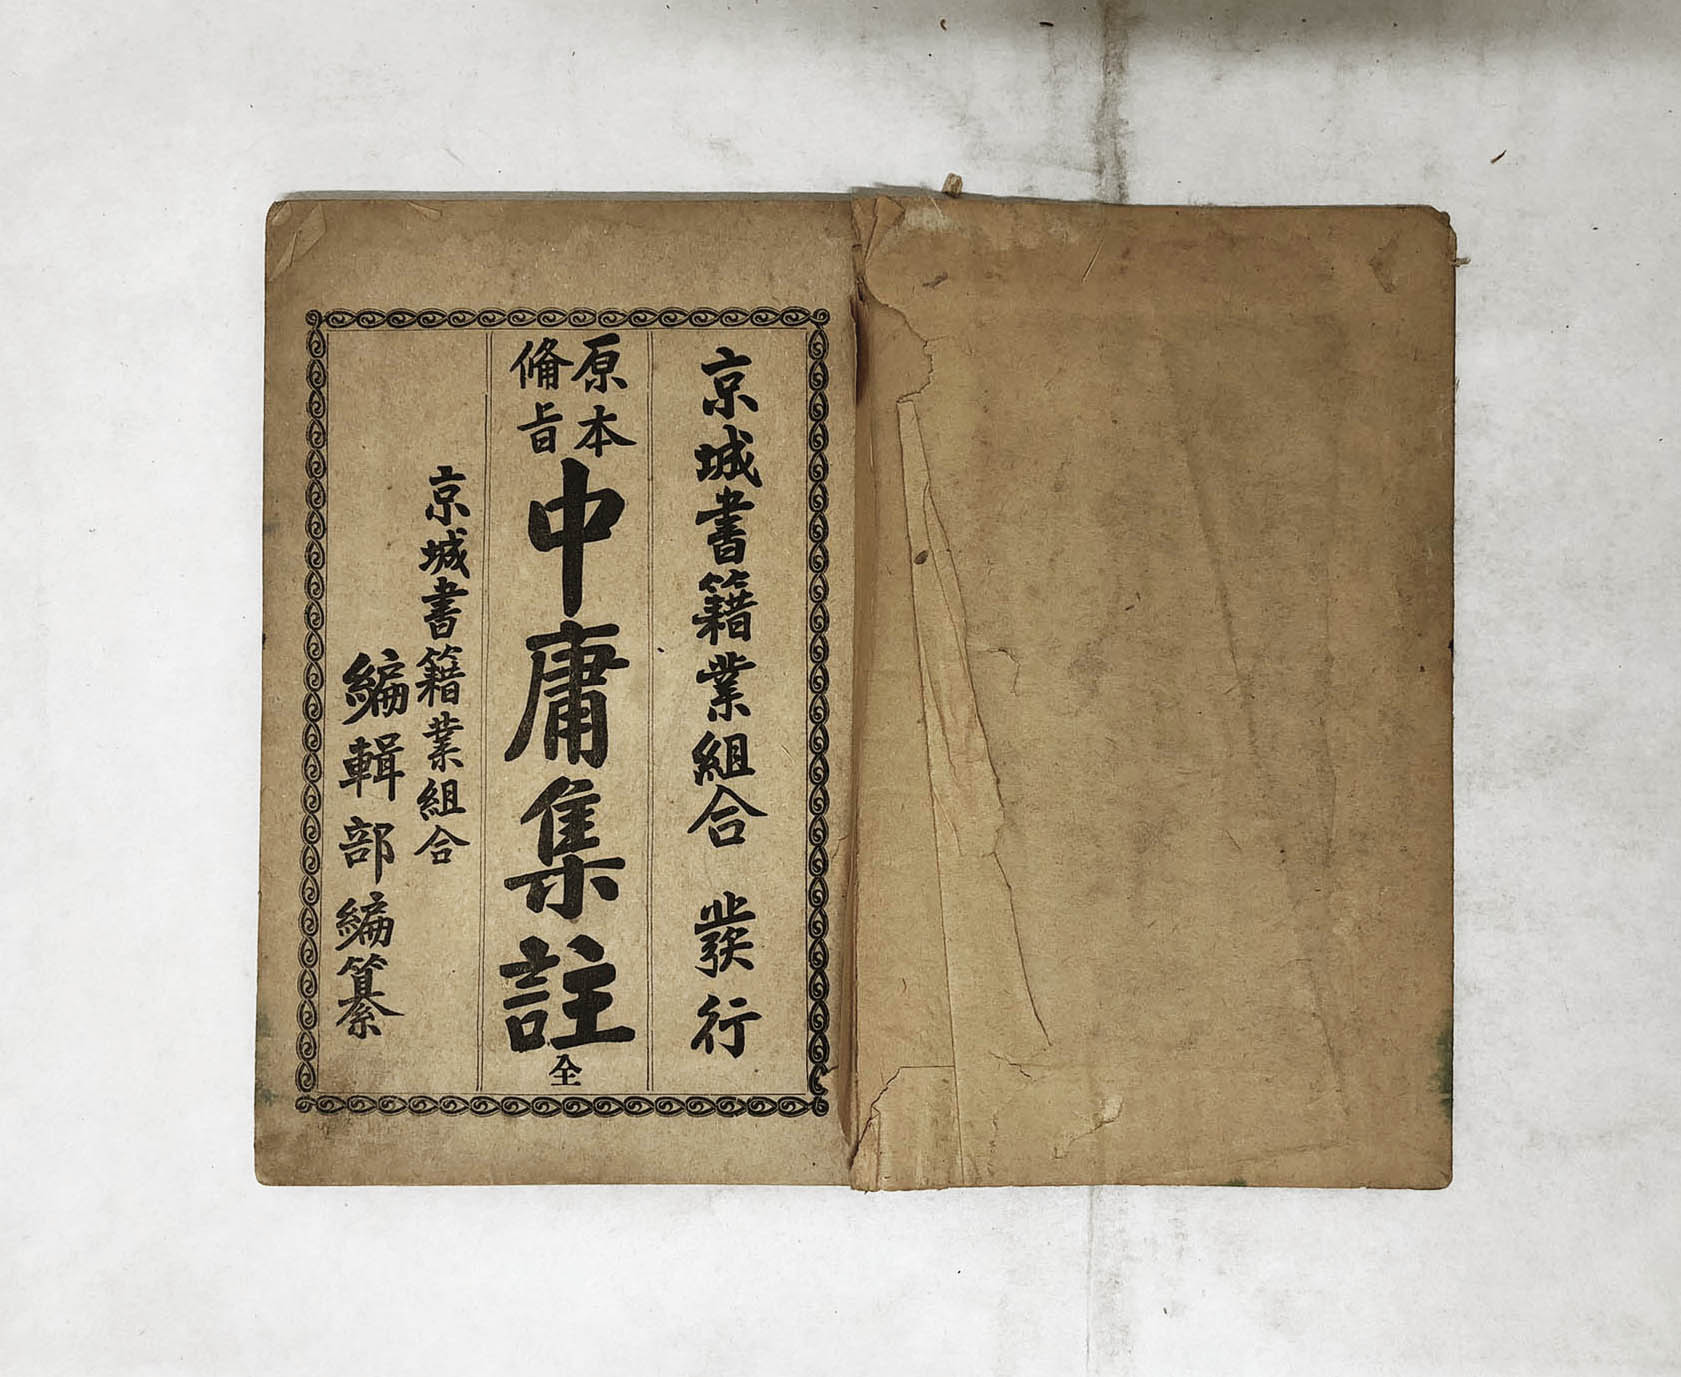 京城書籍業組合 發行
原本
備旨
中庸集註 全
京城書籍業組合
編輯部編纂